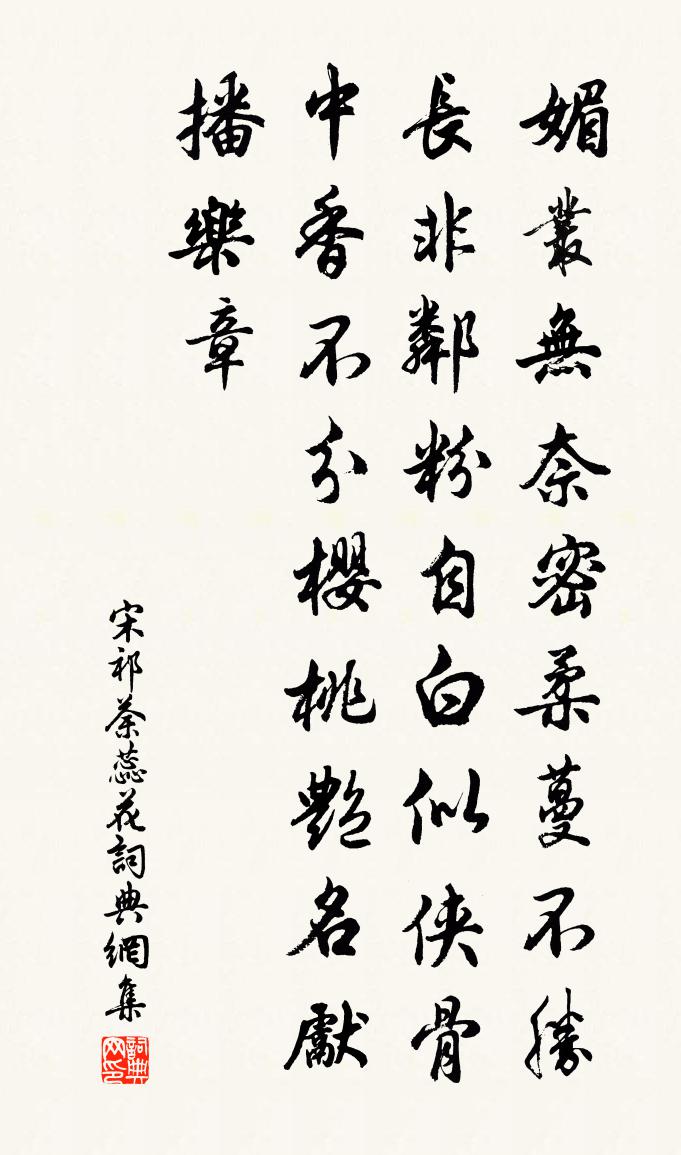 媚叢無奈密柔蔓不勝
長非鄰粉自白似俠骨
中香不分櫻桃艷名獻
播樂章
宋祁荼蕊花詞典網集
詞典网印